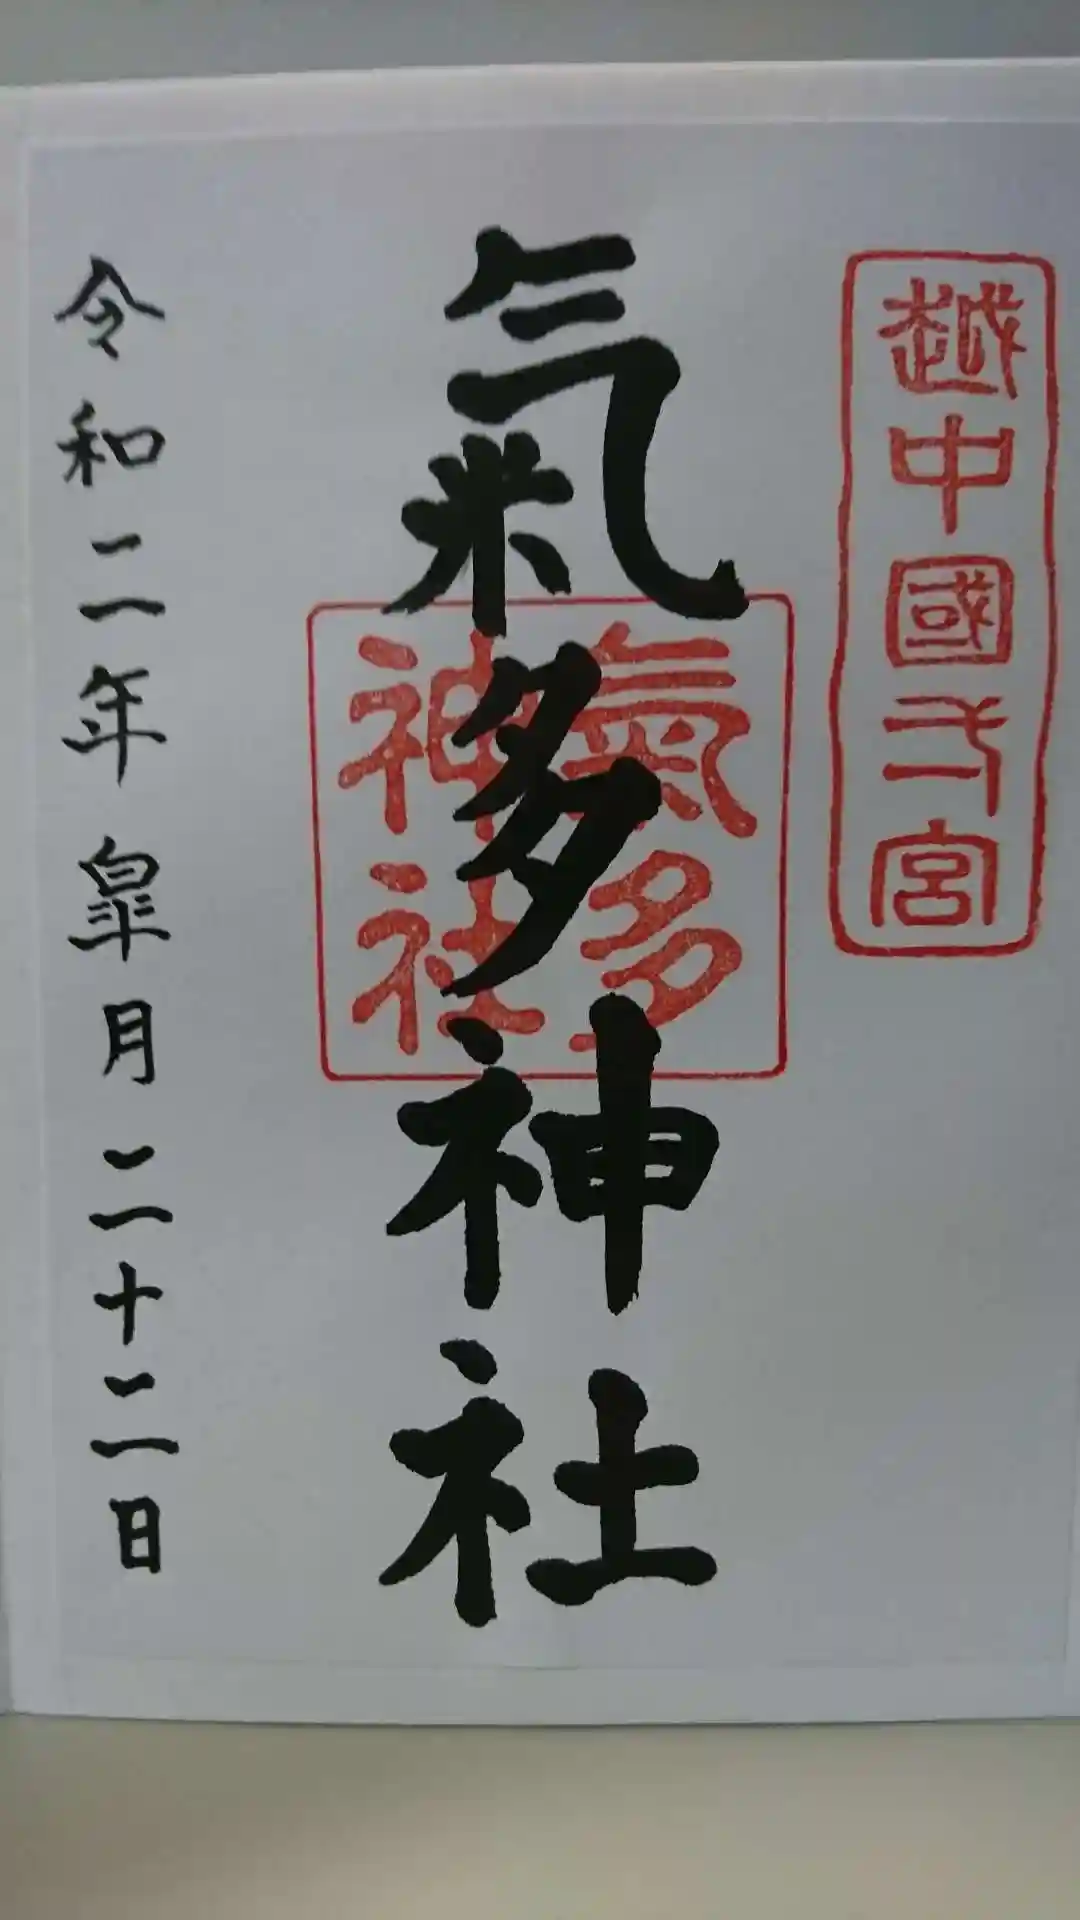 越中國弌宮
氣多神社
氣多
神社
令和二年皐月二十二日